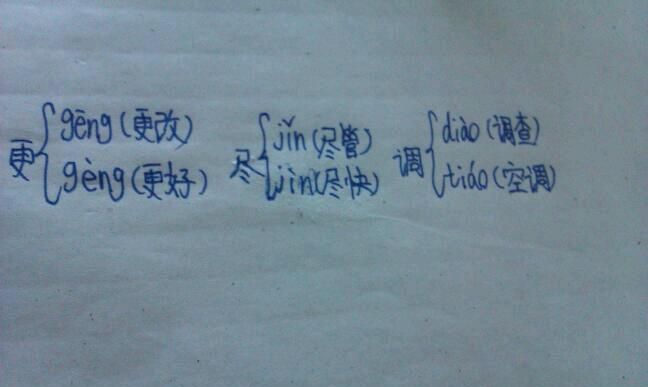 更{gēng(更改) gèng(更好) 尽{jǐn(尽管) jìn(尽快) 调{diào(调查) tiáo(空调)